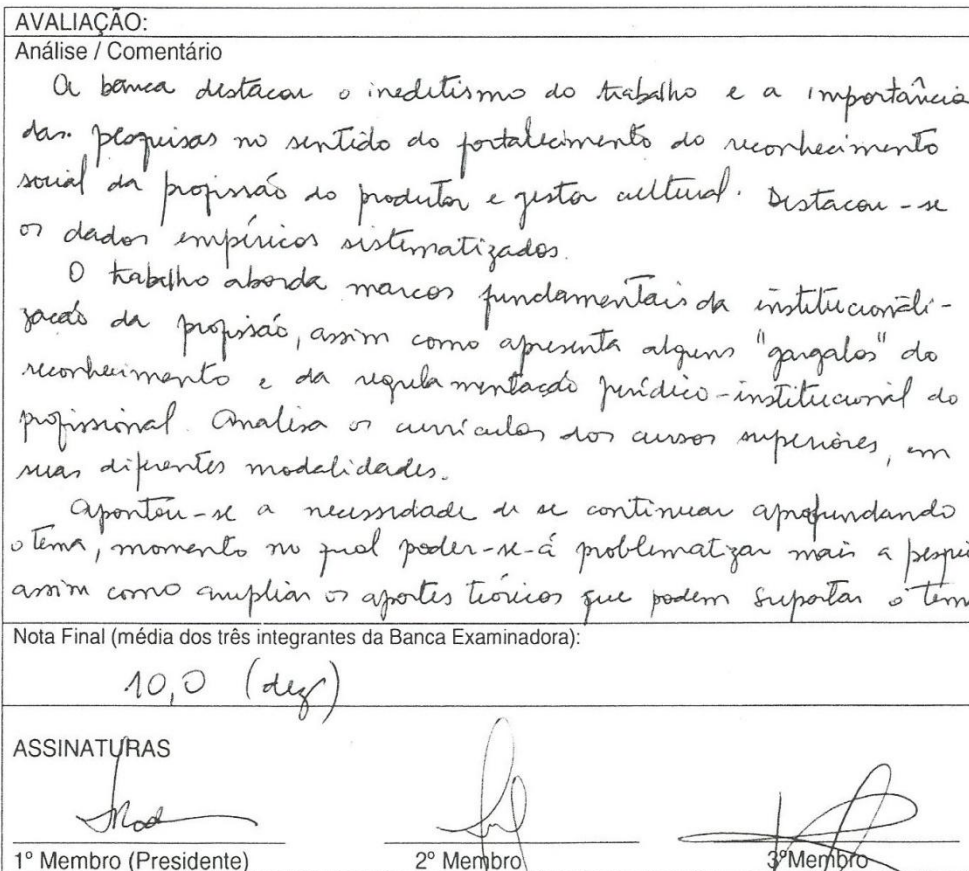 AVALIAÇÃO:
Análise / Comentário
A banca destacou o ineditismo do trabalho e a importância
das pesquisas no sentido do fortalecimento do reconhecimento
social da profissão do produtor e gestor cultural. Destacou-se
os dados empíricos sistematizados.
O trabalho aborda marcos fundamentais da institucionali-
zação da profissão, assim como apresenta alguns "gargalos" do
reconhecimento e da regulamentação jurídico-institucional do
profissional. Analisa os currículos dos cursos superiores, em
suas diferentes modalidades.
Apontou-se a necessidade de se continuar aprofundando
o tema, momento no qual poder-se-á problematizar mais a pesqui
assim como ampliar os aportes teóricos que podem suportar o tem
Nota Final (média dos três integrantes da Banca Examinadora):
10,0 (dez)
ASSINATURAS
1º Membro (Presidente) 2º Membro 3º Membro